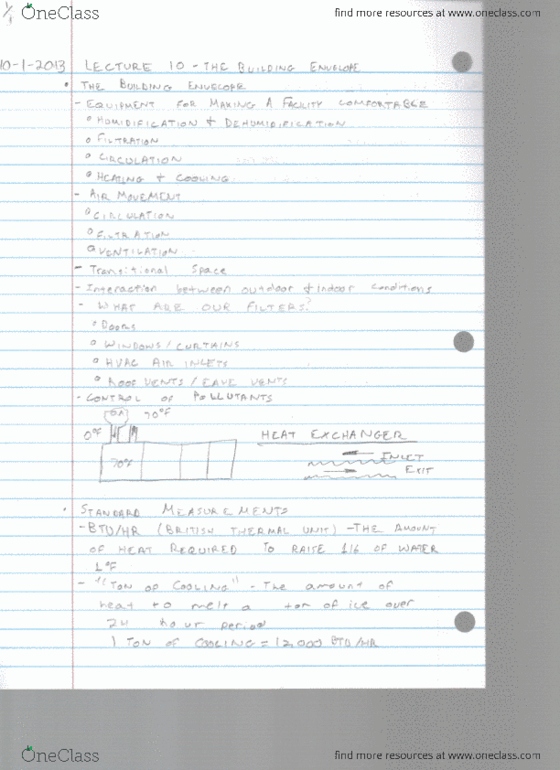 OneClass
find more resources at oneclass.com
10-1-2013 LECTURE 10 - THE BUILDING ENVELOPE
• THE BUILDING ENVELOPE
- EQUIPMENT FOR MAKING A FACILITY COMFORTABLE
° HUMIDIFICATION + DEHUMIDIFICATION
° FILTRATION
° CIRCULATION
° HEATING + COOLING
- AIR MOVEMENT
° CIRCULATION
° FILTRATION
° VENTILATION
- Transitional Space
- Interaction between outdoor + indoor conditions
- WHAT ARE OUR FILTERS?
° DOORS
° WINDOWS / CURTAINS
° HVAC AIR INLETS
° ROOF VENTS / EAVE VENTS
- CONTROL OF POLLUTANTS
70°F
0°F
HEAT EXCHANGER
70°F
INLET
EXIT
• STANDARD MEASUREMENTS
- BTU/HR (BRITISH THERMAL UNIT) - THE AMOUNT
OF HEAT REQUIRED TO RAISE 1lb OF WATER
1°F
- "TON OF COOLING" - The amount of
heat to melt a ton of ice over
24 hour period
1 TON OF COOLING = 12,000 BTU/HR
OneClass
find more resources at oneclass.com